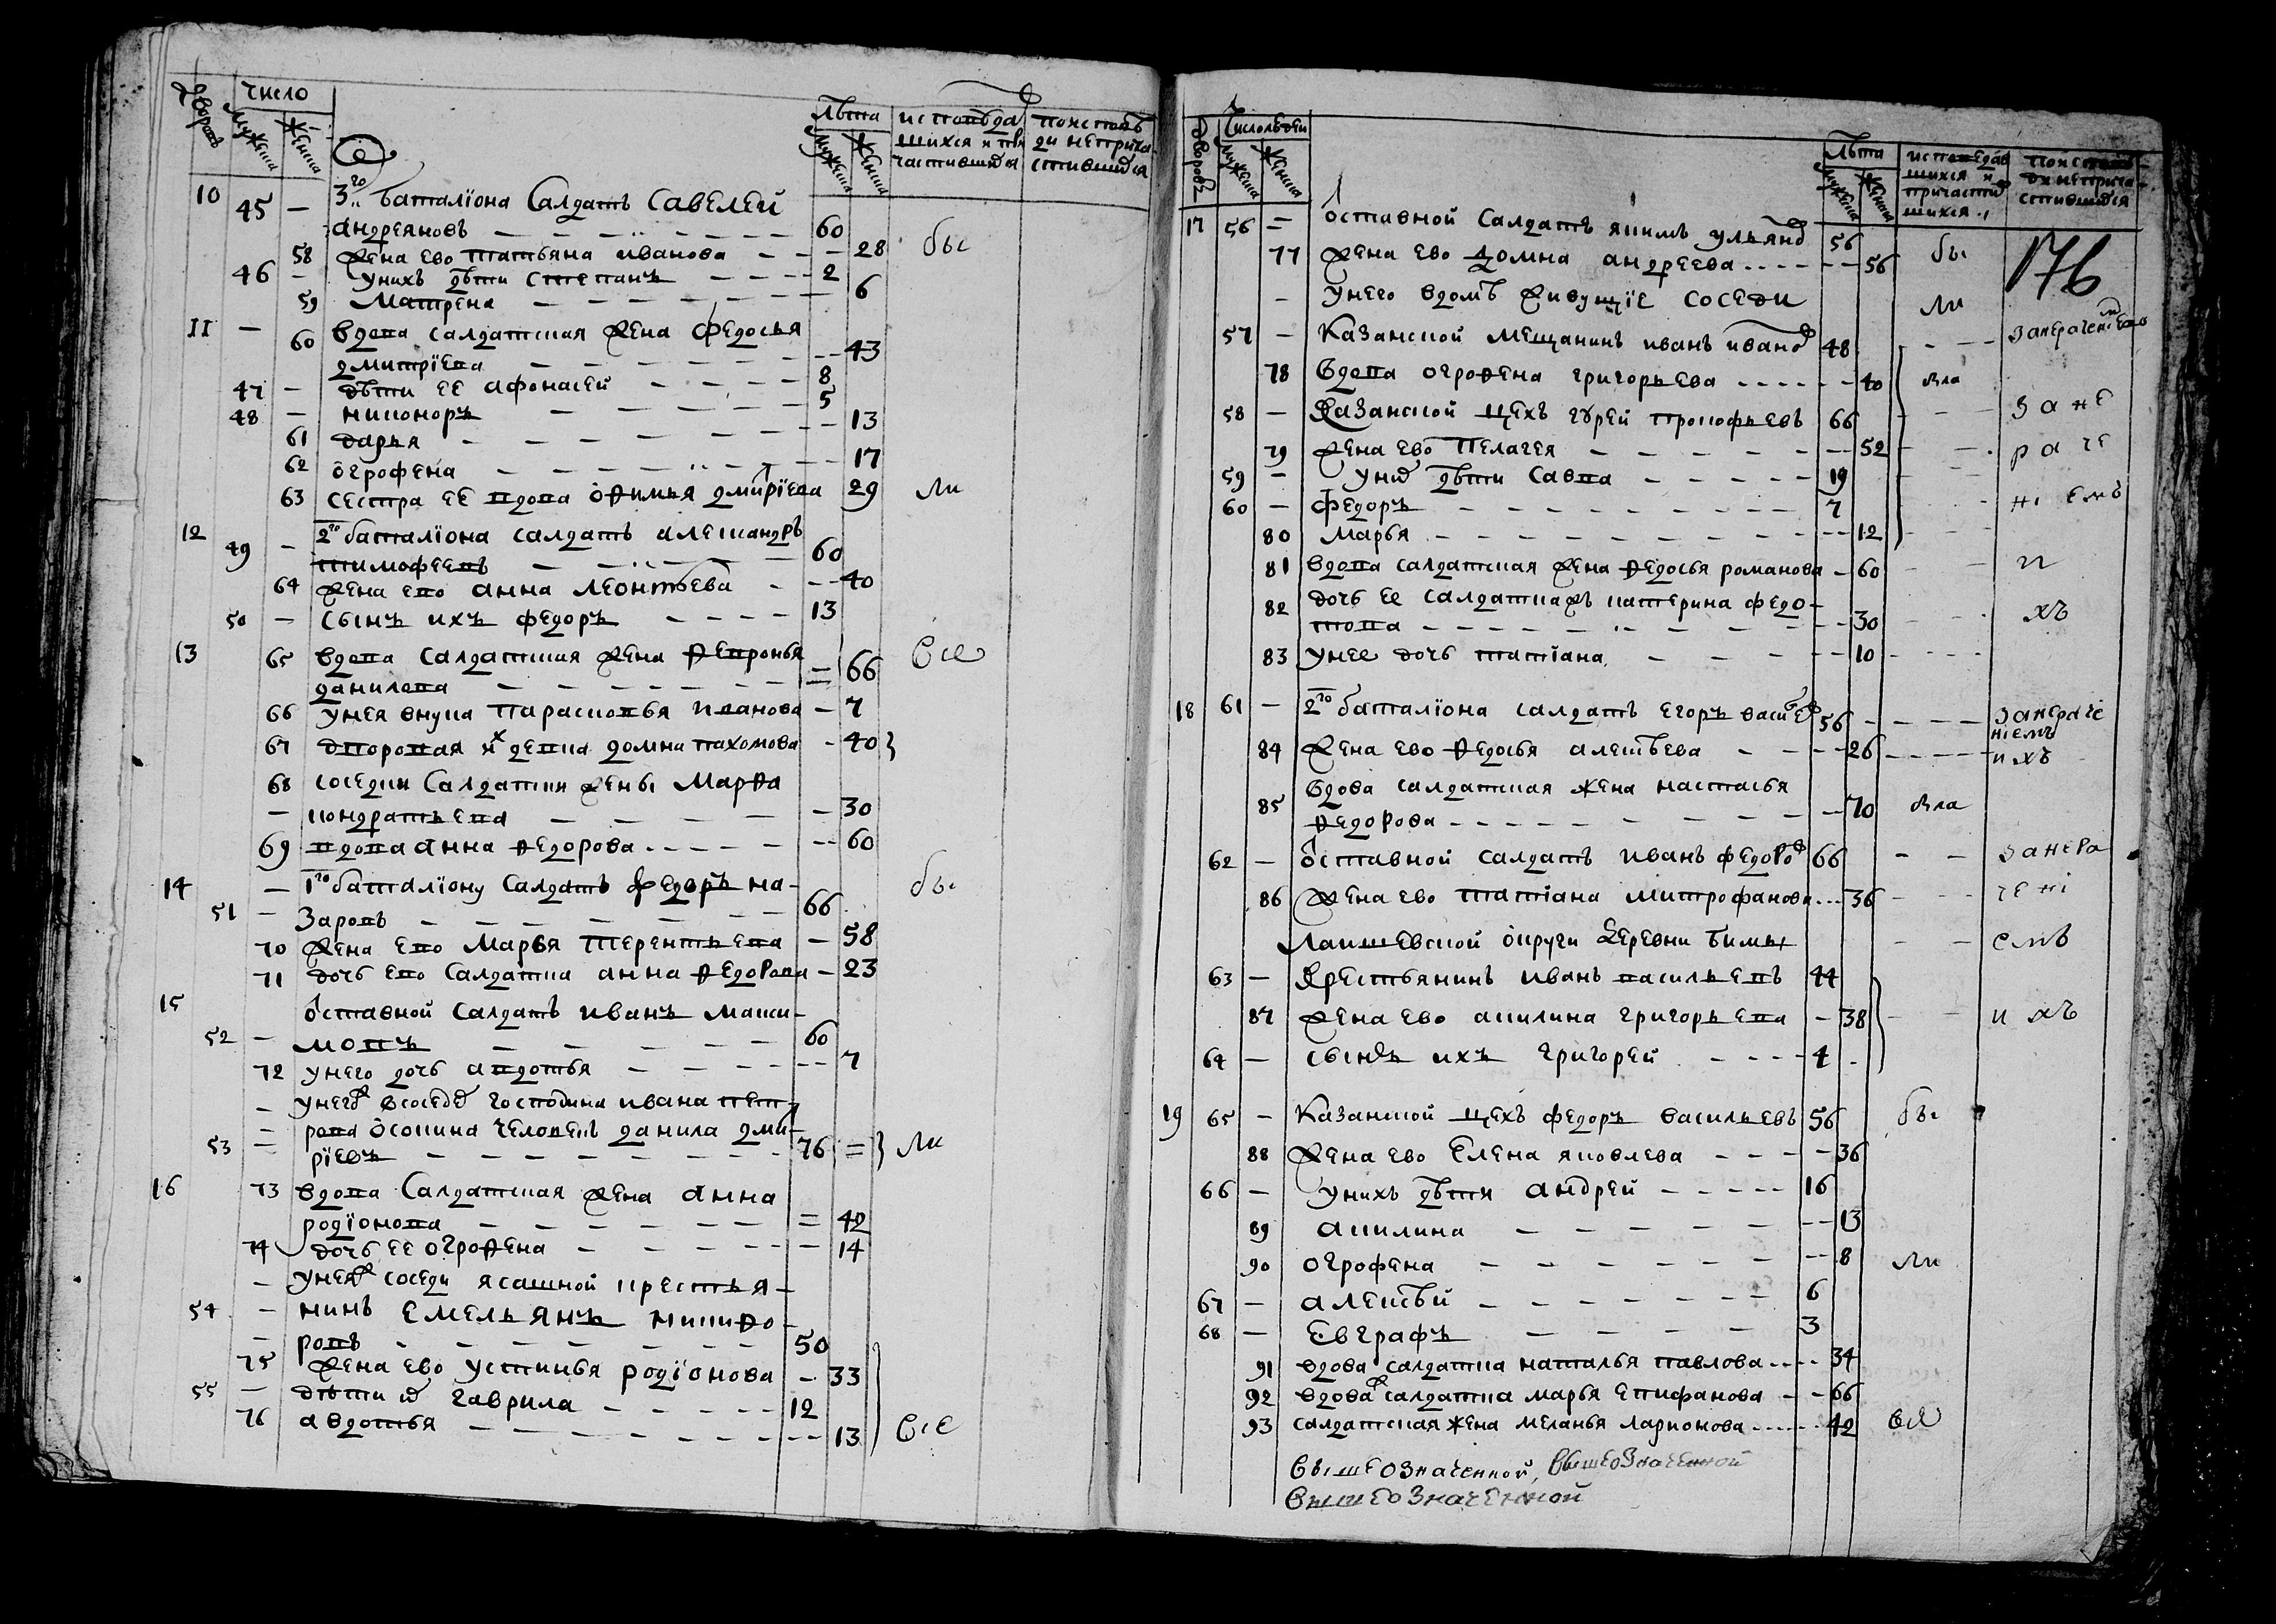 дворовъ число лѣта исповѣда поисповѣ
мужеска женска мужеска женска шихся и при ди неприча
частившися стившися
10 45 — 3го баталїона Салдатъ Савелей
андреяновъ — 60
58 Жена ево татьяна иванова — 28 бы
46 — унихъ дѣти степанъ — 2
59 Матрена — 6
11 — 60 вдова салдатская жена федосья
дмитрїева — 43
47 — дѣти ее афонасей — 8
48 — никоноръ — 5
61 дарья — 13
62 огрофена — 17
63 сестра ее вдова офимья дмитрїева 29 ли
12 49 — 2го баталїона салдатъ александръ
тимофеевъ — 60
64 жена ево анна леонтьева — 40
50 — сынъ ихъ федоръ — 13
13 65 вдова салдатская жена февронья
данилова — 66 все
66 унея внука парасковья иванова — 7
67 дворовая дѣвка домна пахомова — 40
68 соседки Салдатки жены Марфа
— кондратьева — 30
69 вдова анна федорова — 60
14 51 — 1го баталїону Салдатъ федоръ на-
заровъ — 66 бы
70 жена ево Марья терентьева — 58
71 дочь ево Салдатка анна федорова — 23
15 оставной Салдатъ иванъ макси-
52 — мовъ — 60
72 унего дочь авдотья — 7
— унегож всоседѣ господина ивана пет-
рова осокина человекъ данила дми-
53 — рїевъ — 76 = ли
16 73 вдова Салдатская жена анна
родїонова — 42
74 дочь ее огрофена — 14
— унеяж соседи ясашной крестья-
54 — нинъ емельянъ никифо-
— ровъ — 50
75 жена ево устинья родїонова — 33
55 — дѣти их гаврила — 12
76 авдотья — 13 все
дворовъ Число людей лѣта исповедав поисповѣ
мужеска женска мужеска женска шихся и ди неприча
причасти стившися
шихся
17 56 — оставной Салдатъ якимъ ульянов 56
77 жена ево домна андреева — 56 бы 176
— унего вдомѣ живущїе соседи ли
57 — Казанской мещанинъ иванъ иванов 48 — занерачениемъ
78 вдова огрофена григорьева — 40 была
58 — Казанской цехъ гурей прокофьевъ 66 — зане
79 жена ево пелагея — 52 — раче
59 — уних дѣти Савва — 19
60 — федоръ — 7 — ніемъ
80 Марья — 12
81 вдова салдатская жена федосья романова — 60 — и
82 дочь ее салдатка катерина федо-
това — 30 — хъ
83 унее дочь татїана — 10
18 61 — 2го баталїона салдатъ егоръ васильев 56 — занераче
ніемъ
84 жена ево федосья алексѣева — 26 — ихъ
85 вдова салдатская жена настасья
федорова — 70 была
62 — оставной салдатъ иванъ федоров 66 — занера
86 жена ево татїана митрофанова — 36 — чені
лаишевской округи деревни бимы — емъ
63 — крестьянинъ иванъ васильевъ 44
87 жена ево акилина григорьева — 38 — ихъ
64 — сынъ ихъ григорей — 4
19 65 — Казанской цехъ федоръ васильевъ 56 бы
88 жена ево Елена яковлева — 36
66 — унихъ дѣти андрей — 16
89 акилина — 13
90 огрофена — 8 ли
67 — алексѣй — 6
68 — Евграфъ — 3
91 вдова салдатка наталья павлова — 34
92 вдова салдатка марья епифанова — 66
93 салдатская жена меланья ларионова — 42 все
вышеозначенной, вышеозначенной
вышеозначенной